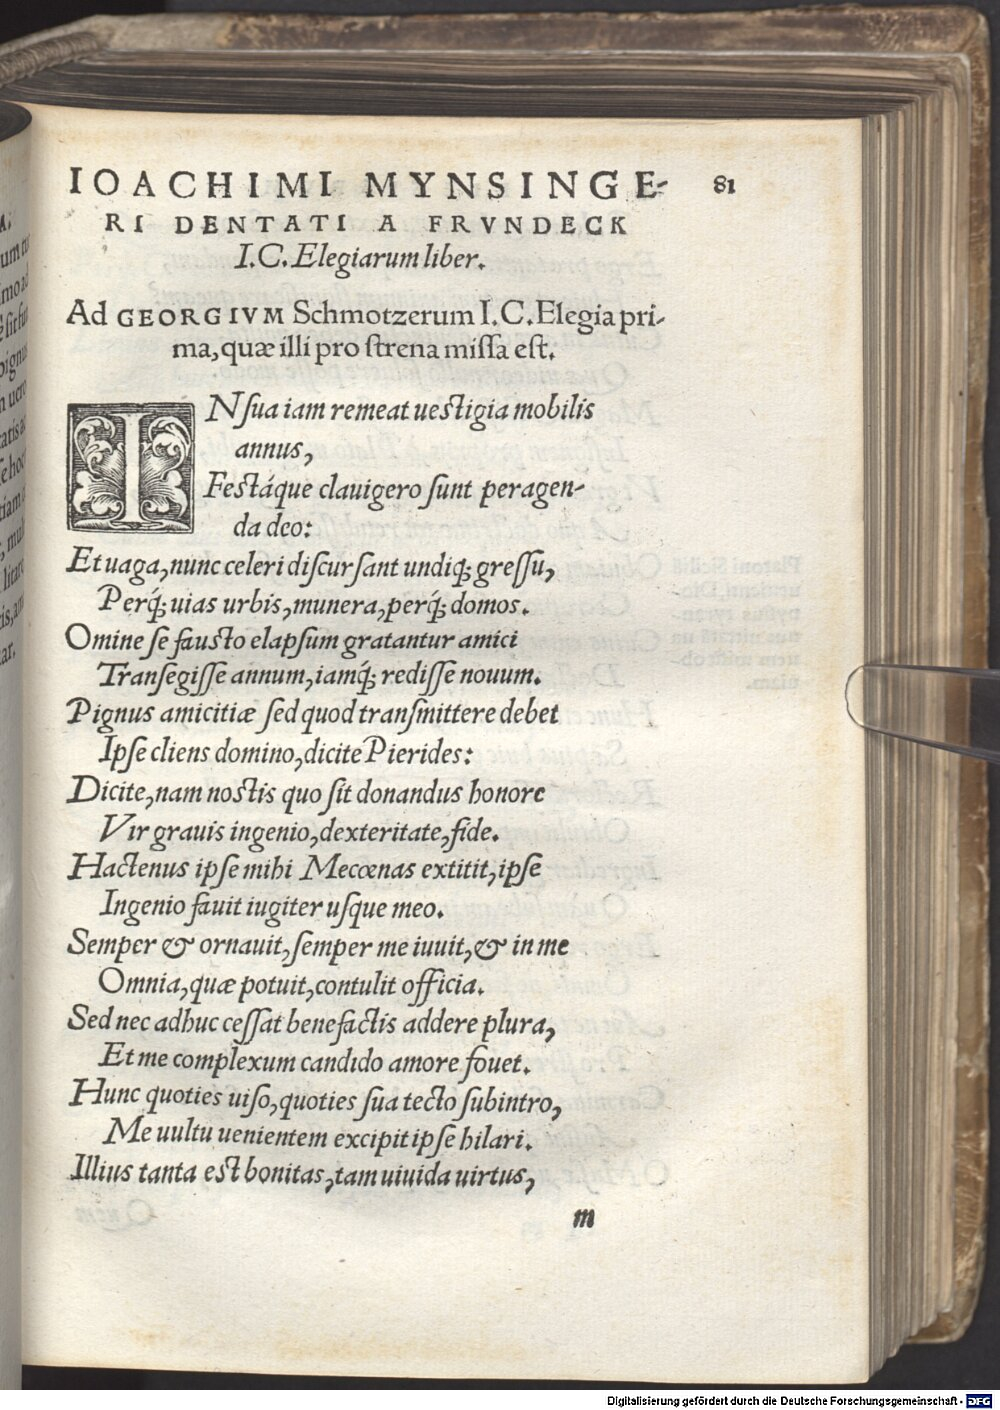 IOACHIMI MYNSINGE- 81
RI DENTATI A FRVNDECK
I.C. Elegiarum liber.
Ad GEORGIVM Schmotzerum I.C. Elegia pri-
ma, quæ illi pro ſtrena miſſa eſt.
IN ſua iam remeat ueſtigia mobilis
annus,
Feſtáque clauigero ſunt peragen-
da deo:
Et uaga, nunc celeri diſcurſant undiq; greſſu,
Perq́; uias urbis, munera, perq́; domos.
Omine ſe fauſto elapſum gratantur amici
Tranſegiſſe annum, iamq́; rediſſe nouum.
Pignus amicitiæ ſed quod tranſmittere debet
Ipſe cliens domino, dicite Pierides:
Dicite, nam noſtis quo ſit donandus honore
Vir grauis ingenio, dexteritate, fide.
Hactenus ipſe mihi Mecœnas extitit, ipſe
Ingenio fauit iugiter uſque meo.
Semper & ornauit, ſemper me iuuit, & in me
Omnia, quæ potuit, contulit officia.
Sed nec adhuc ceſſat benefactis addere plura,
Et me complexum candido amore fouet.
Hunc quoties uiſo, quoties ſua tecto ſubintro,
Me uultu uenientem excipit ipſe hilari.
Illius tanta eſt bonitas, tam uiuida uirtus,
m
Digitalisierung gefördert durch die Deutsche Forschungsgemeinschaft - DFG